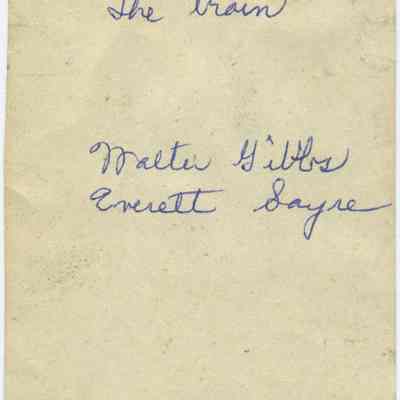 The train
Walter Gibbs
Everett Sayre